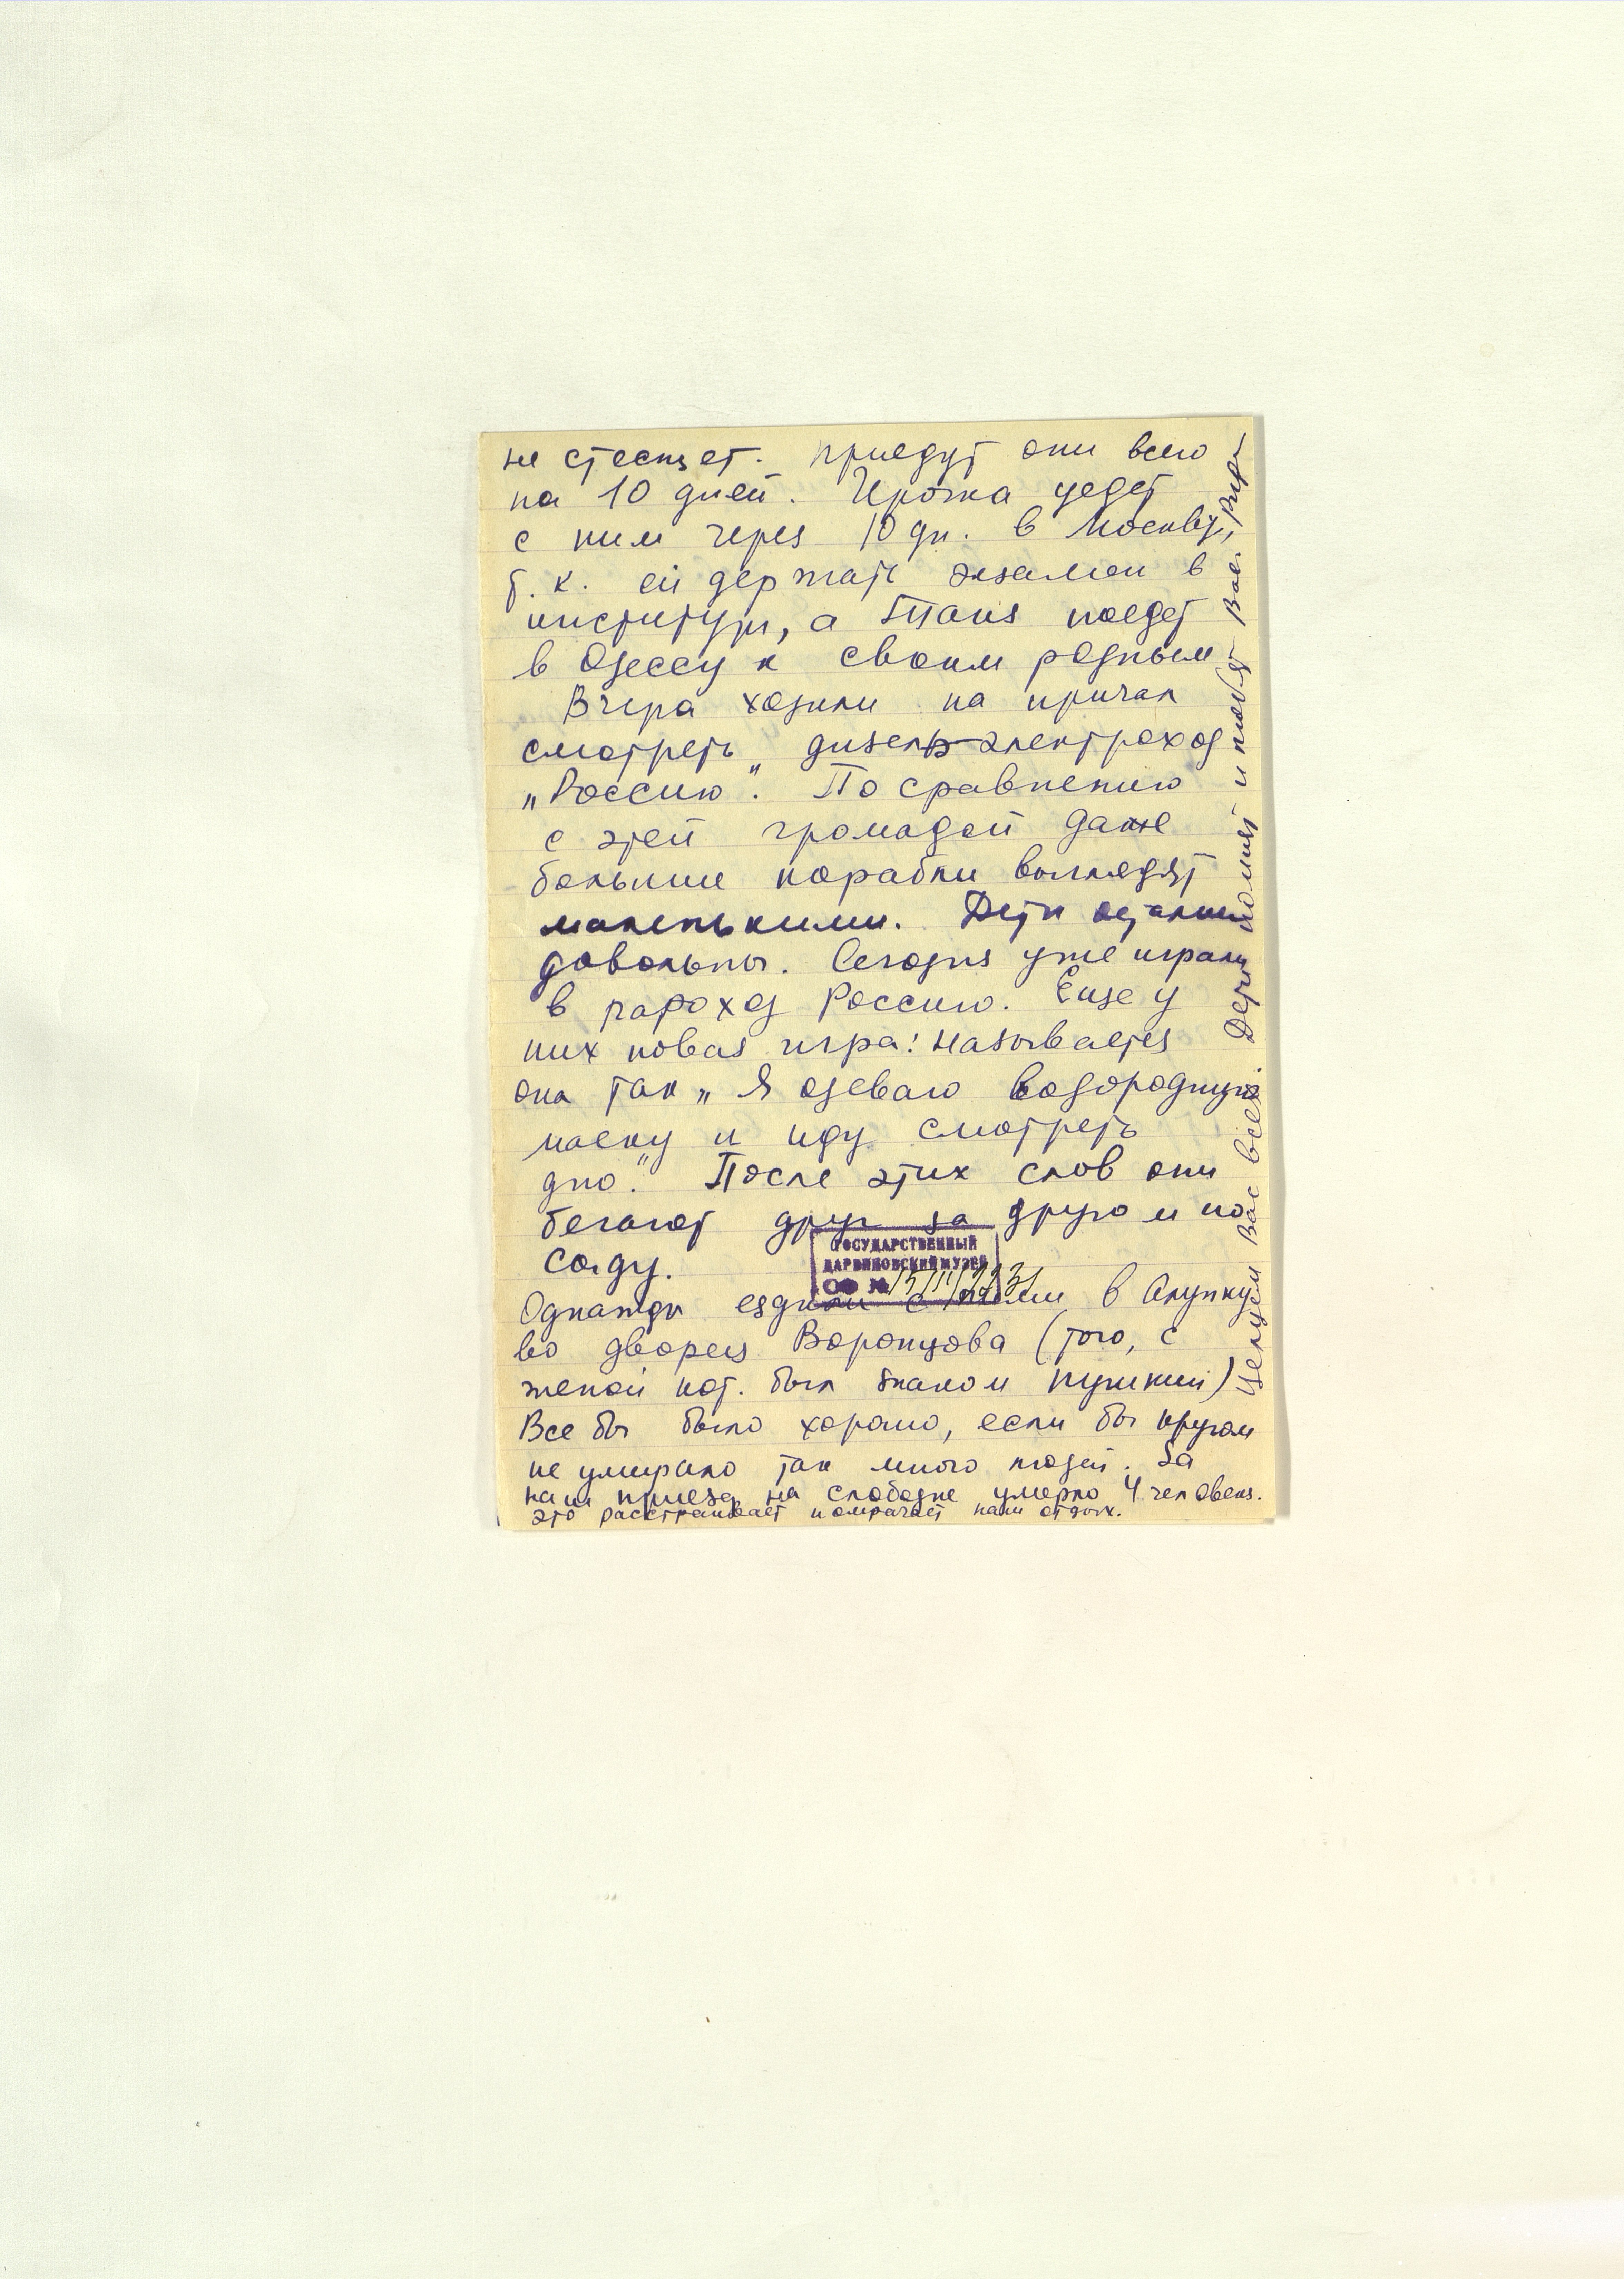 не стеснят. Приедут они всего
на 10 дней. Ирочка уедет
с ним через 10 дн. в Москву,
т. к. ей держать экзамен в
институт, а поедет
в Одессу к своим родным
Вчера ходили на причал
смотреть дизель-электроход
„Россию". По сравнению
с этой громадой даже
большие корабли выглядят
маленькими. Дети остались
довольны. Сегодня уже играли
в пароход Россию. Еще у
них новая игра: называется
она так „Я одеваю водородную
маску и иду смотреть
дно." После этих слов они
бегают друг за другом по
саду.
ГОСУДАРСТВЕННЫЙ
ДАРВИНОВСКИЙ МУЗЕЙ
ОФ №
Однажды ездили с в Алупку
во дворец Воронцова (того, с
женой кот. был знаком Пушкин)
Все бы было хорошо, если бы кругом
не умирало так много людей. За
наш приезд на слободке умерло 4 человека.
Это расстраивает и омрачает наш отдых.
Целуем Вас всех. Дети помнят и любят Вас.